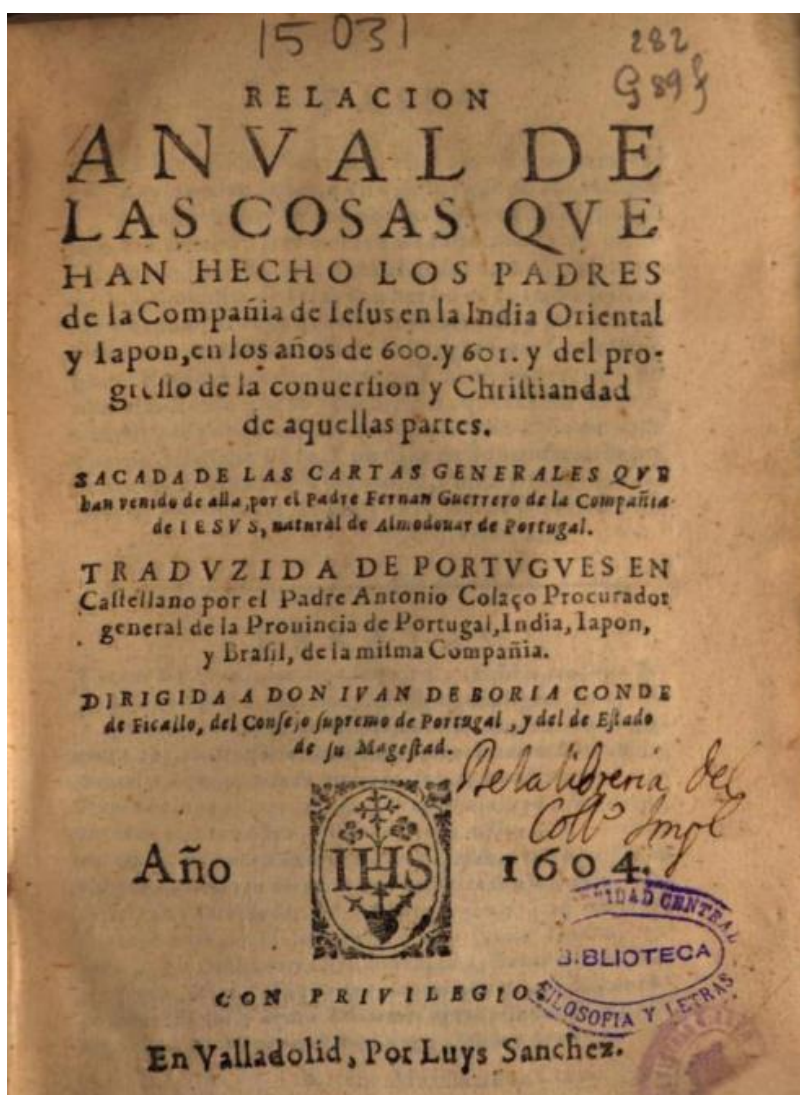 15031
282
G 89 f
RELACION
ANVAL DE
LAS COSAS QVE
HAN HECHO LOS PADRES
de la Compañia de Iesus en la India Oriental
y Iapon, en los años de 600. y 601. y del pro-
gresso de la conuersion y Christiandad
de aquellas partes.
SACADA DE LAS CARTAS GENERALES QVE
han venido de alla, por el Padre Fernan Guerrero de la Compañia
de IESVS, natural de Almodouar de Portugal.
TRADVZIDA DE PORTVGVES EN
Castellano por el Padre Antonio Colaço Procurador
general de la Prouincia de Portugal, India, Iapon,
y Brasil, de la misma Compañia.
DIRIGIDA A DON IVAN DE BORIA CONDE
de Ficallo, del Consejo supremo de Portugal, y del de Estado
de su Magestad.
De la libreria del
Collº Impl
Año IHS 1604.
CON PRIVILEGIO
En Valladolid, Por Luys Sanchez.
CENTRAL
BIBLIOTECA
FILOSOFIA Y LETRAS